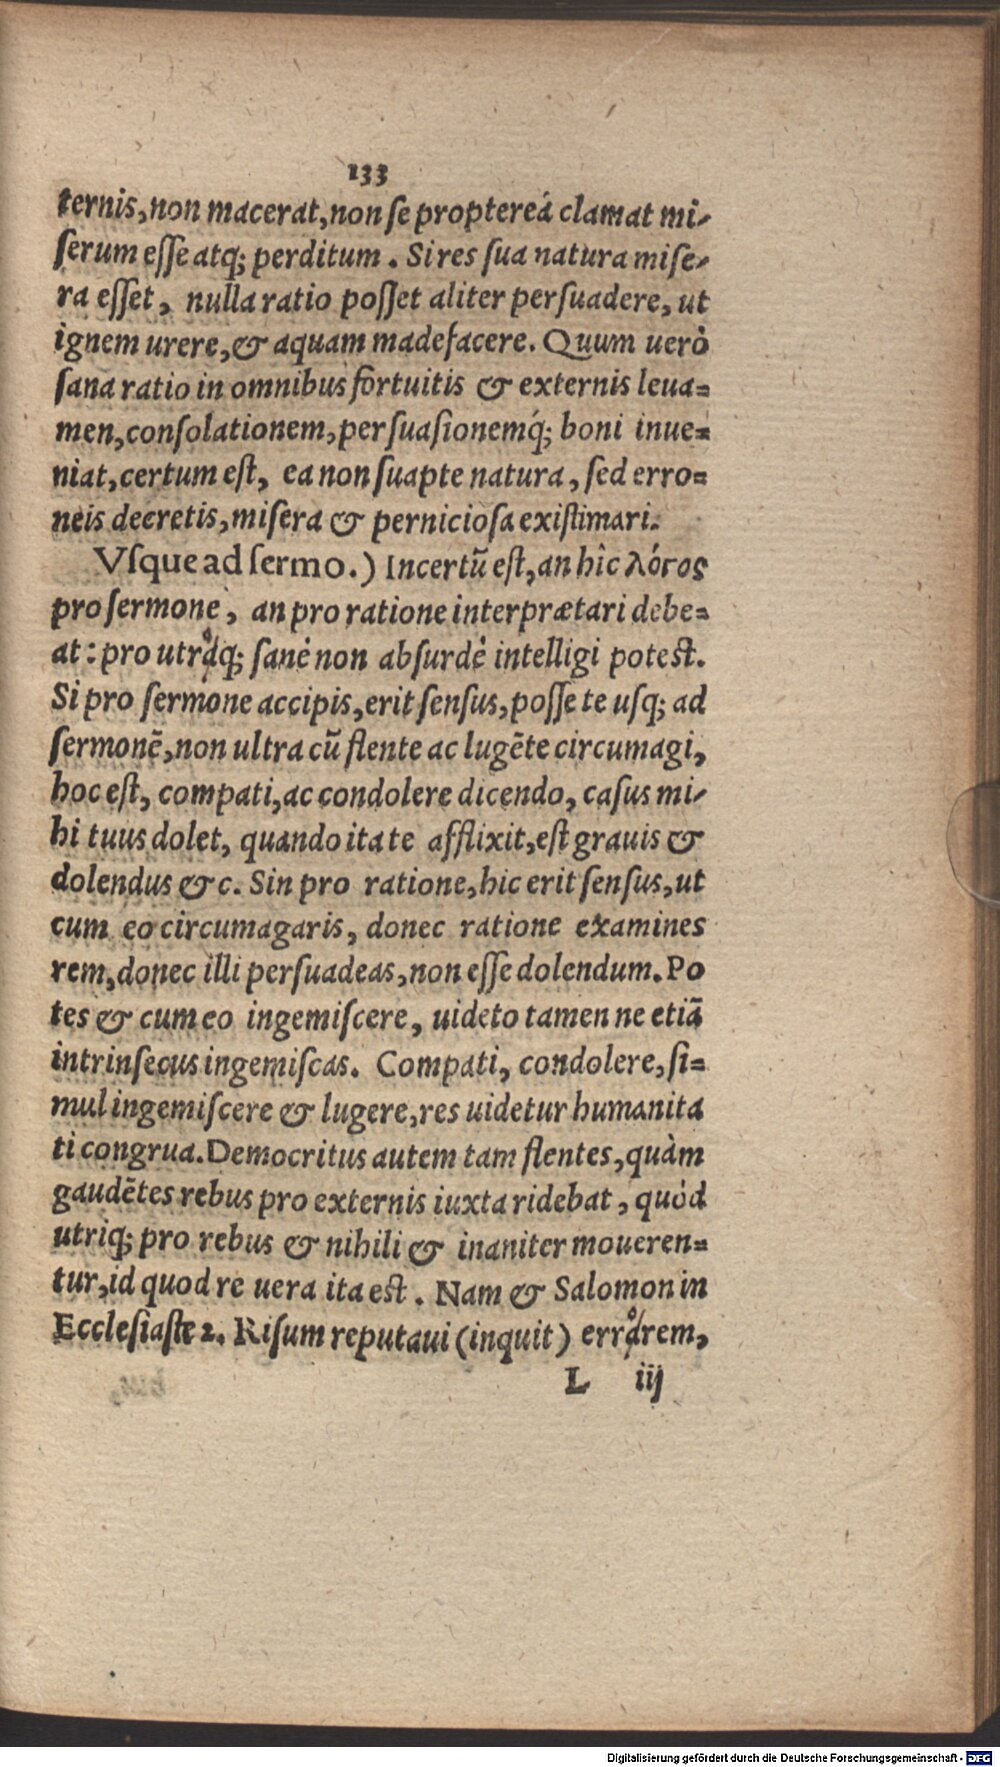 133
ternis, non macerat, non se proptereá clamat mi-
serum esse atq; perditum. Si res sua natura mise-
ra esset, nulla ratio posset aliter persuadere, ut
ignem urere, & aquam madefacere. Quum uerò
sana ratio in omnibus fortuitis & externis leua=
men, consolationem, persuasionemq́; boni inue=
niat, certum est, ea non suapte natura, sed erro=
neis decretis, misera & perniciosa existimari.
Vsque ad sermo.) Incertũ est, an hîc λόγος
pro sermone, an pro ratione interprætari debe=
at: pro utroq; sanè non absurdè intelligi potest.
Si pro sermone accipis, erit sensus, posse te usq; ad
sermonẽ, non ultra cũ flente ac lugẽte circumagi,
hoc est, compati, ac condolere dicendo, casus mi-
hi tuus dolet, quando ita te afflixit, est grauis &
dolendus &c. Sin pro ratione, hic erit sensus, ut
cum eo circumagaris, donec ratione examines
rem, donec illi persuadeas, non esse dolendum. Po
tes & cum eo ingemiscere, uideto tamen ne etiã
intrinsecus ingemiscas. Compati, condolere, si=
mul ingemiscere & lugere, res uidetur humanita
ti congrua. Democritus autem tam flentes, quàm
gaudẽtes rebus pro externis iuxta ridebat, quòd
utriq; pro rebus & nihili & inaniter moueren=
tur, id quod re uera ita est. Nam & Salomon in
Ecclesiaste 2. Risum reputaui (inquit) errorem,
L iij
Digitalisierung gefördert durch die Deutsche Forschungsgemeinschaft - DFG